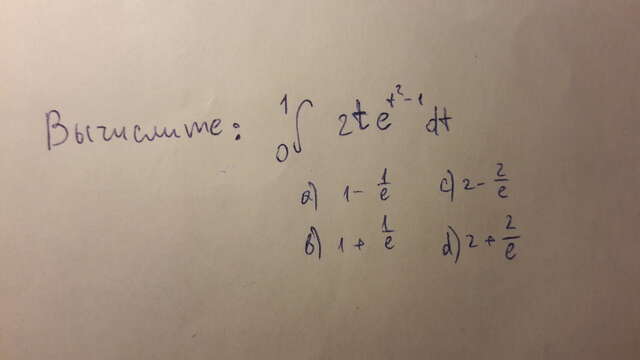 Вычислите: ₀¹∫ 2te^(t²-1) dt
a) 1 - 1/e c) 2 - 2/e
b) 1 + 1/e d) 2 + 2/e